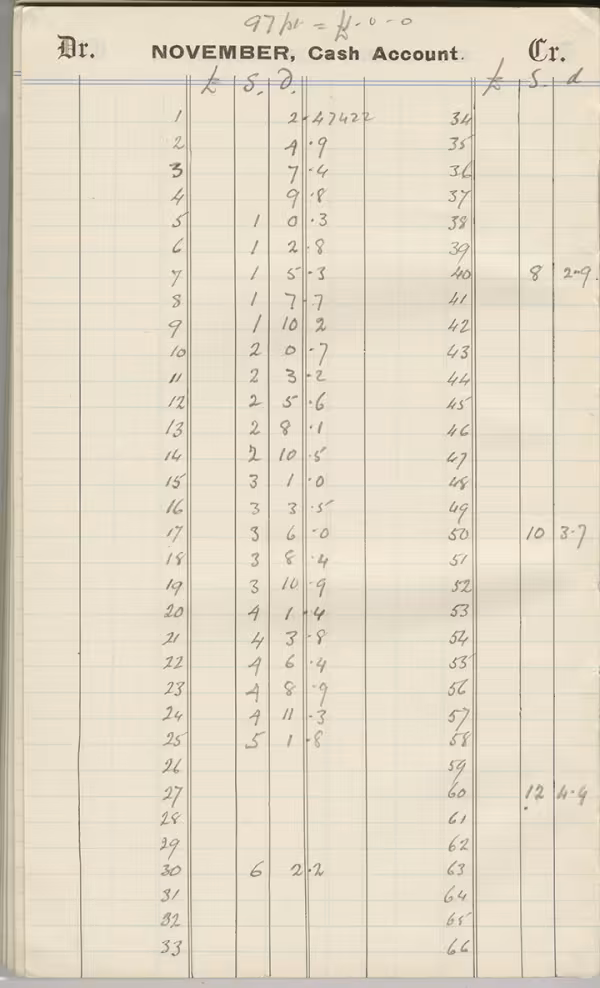 97 pr = £1-0-0
Dr. NOVEMBER, Cash Account. Cr.
£ S. D. £ S. d
1 2·47422 34
2 4·9 35
3 7·4 36
4 9·8 37
5 1 0·3 38
6 1 2·8 39
7 1 5·3 40 8 2-9.
8 1 7·7 41
9 1 10 2 42
10 2 0·7 43
11 2 3·2 44
12 2 5·6 45
13 2 8·1 46
14 2 10·5 47
15 3 1·0 48
16 3 3·5 49
17 3 6·0 50 10 3·7
18 3 8·4 51
19 3 10·9 52
20 4 1·4 53
21 4 3·8 54
22 4 6·4 55
23 4 8·9 56
24 4 11·3 57
25 5 1·8 58
26 59
27 60 12 4·4
28 61
29 62
30 6 2·2 63
31 64
32 65
33 66